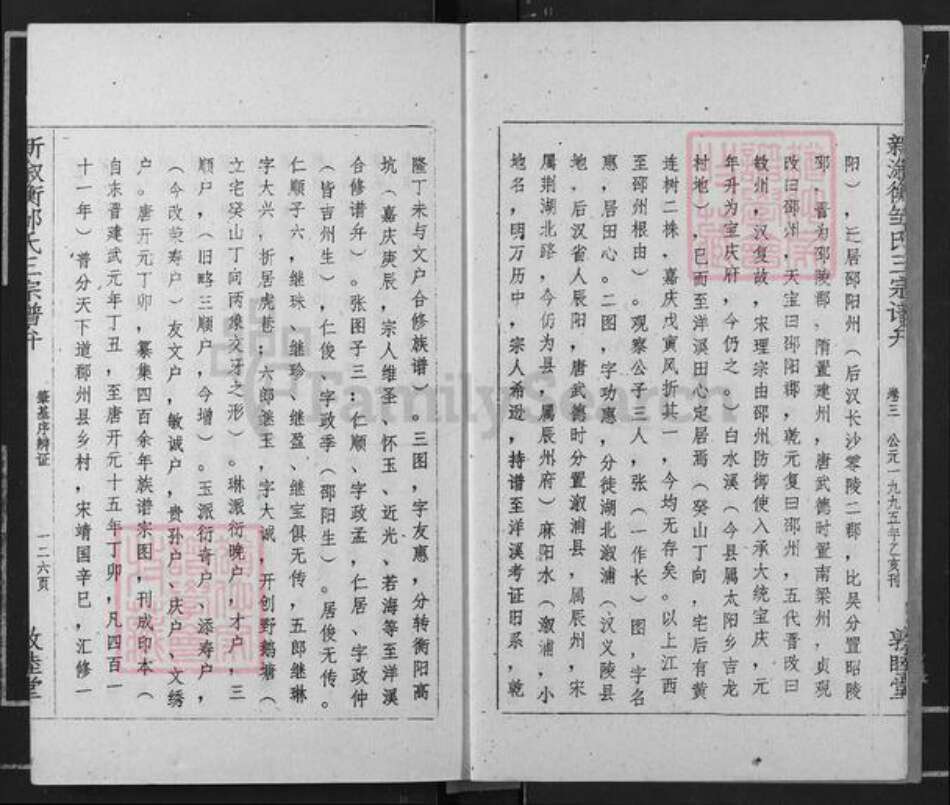 新溆衡邹氏三宗谱弁
卷三 公元一九九五年乙亥刊
敦睦堂
阳），迁居邵阳州（后汉长沙零陵二郡，比吴分置昭陵
郡，晋为邵陵郡、隋置建州，唐武德时置南梁州，贞观
改曰邵州，天宝曰邵阳郡，乾元复曰邵州，五代晋改曰
敏州，汉复故，宋理宗由邵州防御使入承大统宝庆，元
年升为宝庆府，今仍之。）白水溪（今县属太阳乡吉龙
村地），已而至洋溪田心定居焉（癸山丁向，宅后有黄
连树二株，嘉庆戊寅风折其一，今均无存矣。以上江西
至邵州根由）。观察公子三人，张（一作长）图，字名
惠，居田心。二图，字功惠，分徙湖北溆浦（汉义陵县
地，后汉省入辰阳，唐武德时分置溆浦县，属辰州，宋
属荆湖北路，今仍为县，属辰州府）麻阳水（溆浦，小
地名，明万历中，宋人希逊，持谱至洋溪考证旧系，乾
隆丁未与文户合修族谱）。三图，字友惠，分转衡阳高
坑（嘉庆庚辰，宗人维圣、怀玉、近光、若海等至洋溪
合修谱弁）。张图子三：仁顺、字政孟，仁居、字政仲
（皆吉州生），仁俊、字政季（邵阳生）。居俊无传。
仁顺子六，继珠、继珍、继盈、继宝俱无传，五郎继琳
字大兴，折居虎巷；六郎继玉，字大诚，开创野鹅塘（
立宅癸山丁向两娘交牙之形）。琳派衍晚户，才户，三
顺户，（旧略三顺户，今增）。玉派衍奇户、添寿户，
（今改荣寿户）友文户，敏诚户，贵孙户、庆户、文绣
户。唐开元丁卯，纂集四百余年族谱宗图，刊成印本（
自东晋建武元年丁丑，至唐开元十五年丁卯，凡四百一
十一年）普分天下道郡州县乡村，宋靖国辛巳，汇修一
新溆衡邹氏三宗谱弁
肇基序辨证
一二六页
敦睦堂